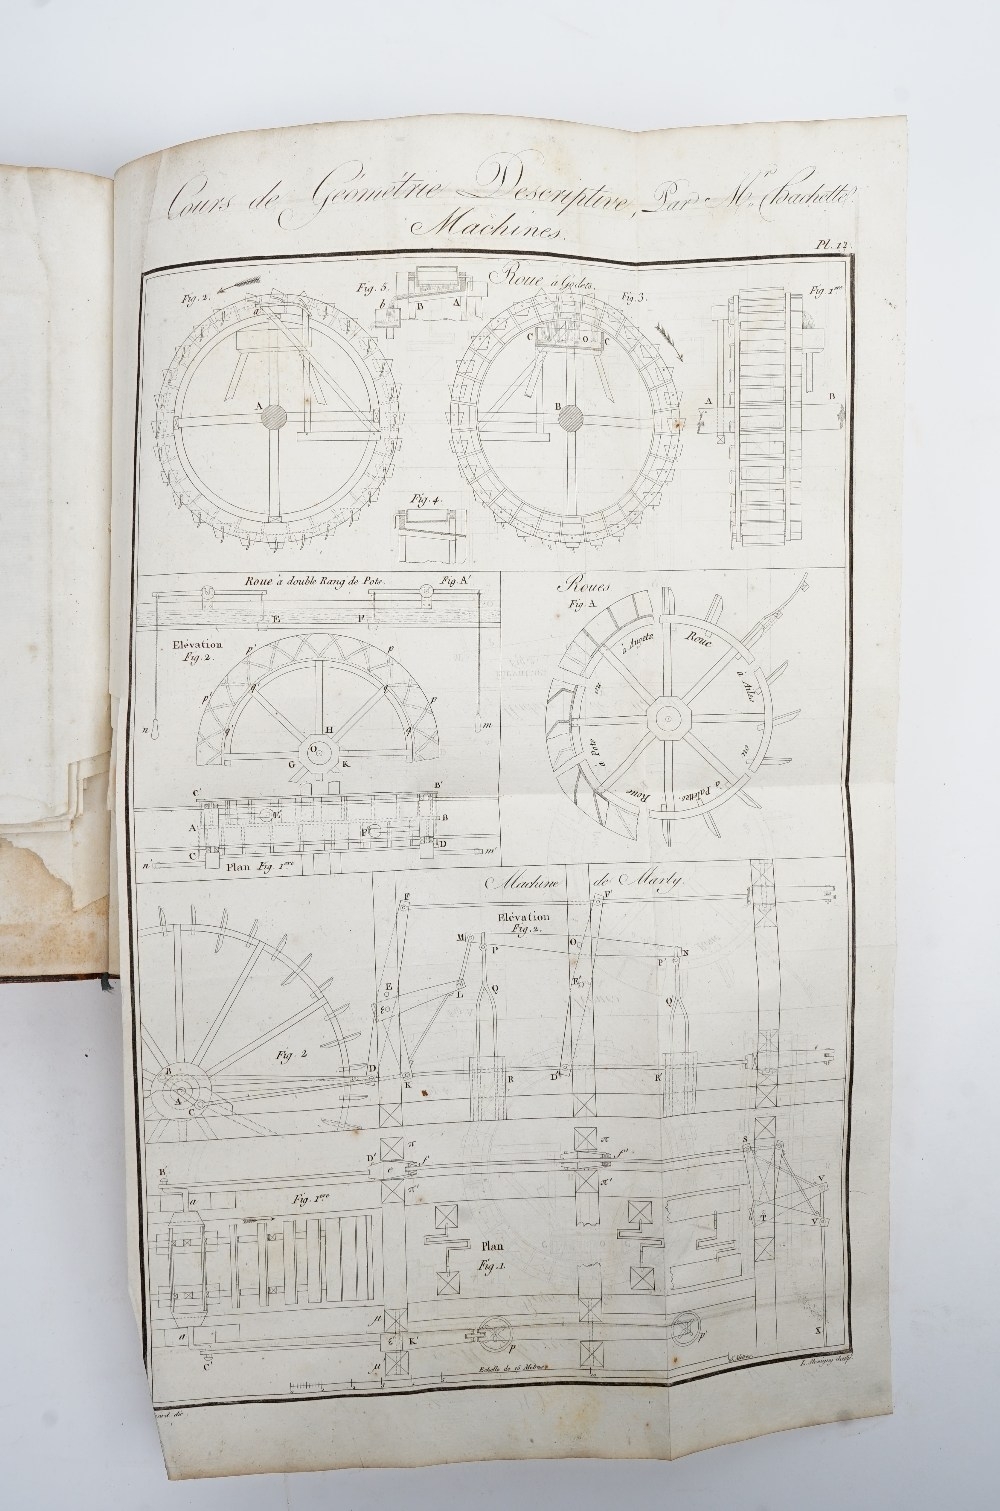 Cours de Géométrie Descriptive, Par Mr. Hachette.
Machines.
Pl. 12.
Roue à Godets.
Fig. 2.
Fig. 5.
Fig. 3.
Fig. 1re
a
b
B
A
C
O
C
A
B
A
B
Fig. 4.
Roue à double Rang de Pots.
Fig. A'
E
F
Elévation
Fig. 2.
p'
p
p'
q
q
p
q
q
n
m
H
O
G
K
C'
B'
A
E
F
B
C
D
n'
m'
Plan Fig. 1ere
Roues
Fig. A
à Augets
Roue
à Ailes
ou
à Palettes.
Roue
à Pots
ou
Machine de Marly
Elévation
Fig. 2.
F
F'
M
P
O
P'
N
E
L
Q
E'
Q'
Fig. 2
B
A
C
D
K
R
D'
R'
D'
e
f
π
π'
π
f'
π'
B'
a
Fig. 1ere
S
T
V
Y
Plan
Fig. 1.
a
C'
μ
K'
μ
p
p'
Z
Echelle de 16 Mètres